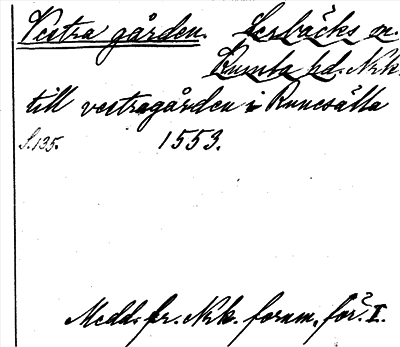 Vestra gården. Lerbäcks sn.
Kumla hd. Nrk.
till vestragården i Runesätla
S. 135. 1553.
Medd. fr. Nrk. fornm. för. I.